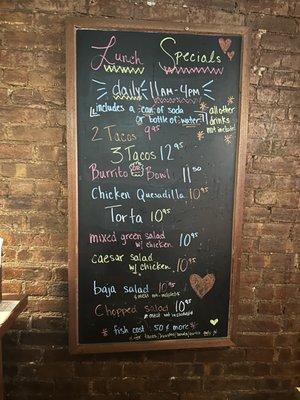 Lunch Specials
daily 11AM-4PM
includes a can of soda
or bottle of water
all other
drinks
not included
2 Tacos 9.95
3 Tacos 12.95
Burrito Bowl 11.50
Chicken Quesadilla 10.95
Torta 10.95
mixed green salad
w/ chicken 10.95
caesar salad
w/ chicken 10.95
baja salad 10.95
meat not included
Chopped salad 10.95
meat not included
fish cost .50 ¢ more